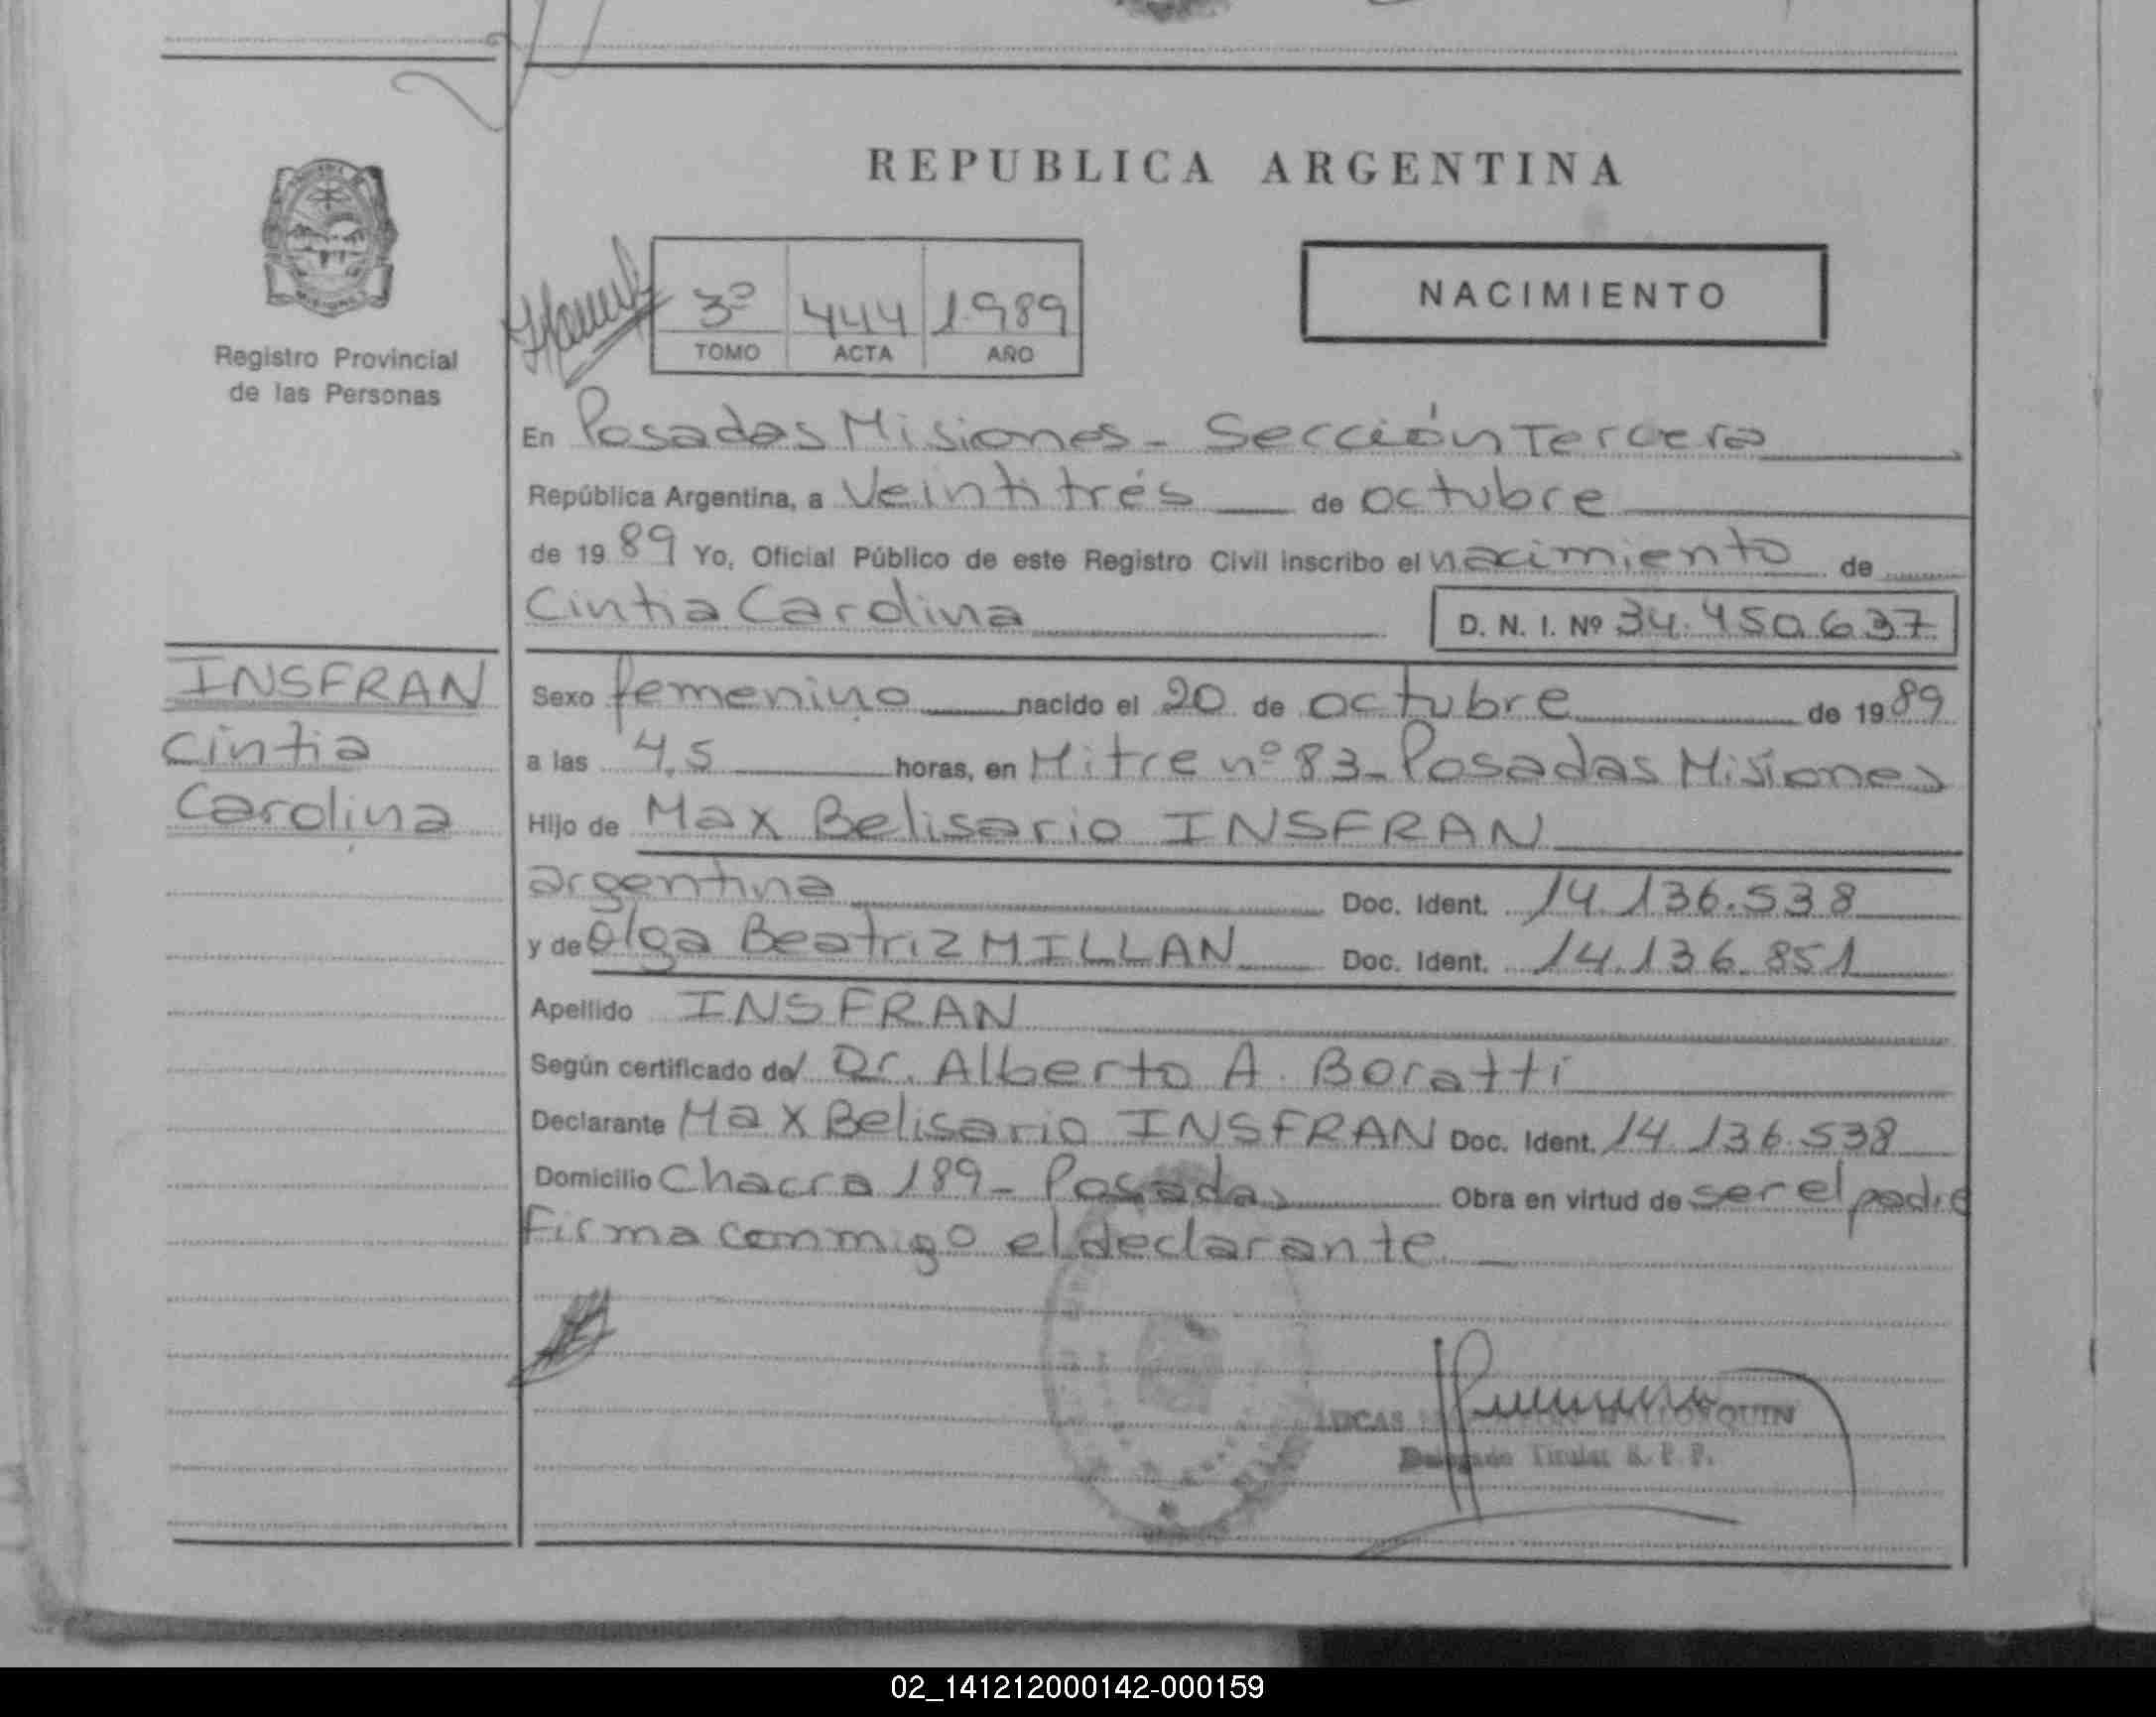 REPUBLICA ARGENTINA
MISIONES
Registro Provincial
de las Personas
3º 444 1.989
TOMO ACTA AÑO
NACIMIENTO
En Posadas Misiones - Sección Tercera
República Argentina, a Veintitrés de octubre
de 1989 Yo, Oficial Público de este Registro Civil inscribo el nacimiento de
Cintia Carolina D. N. I. Nº 34.450.637
INSFRAN
Cintia
Carolina
Sexo femenino nacido el 20 de octubre de 1989
a las 4,5 horas, en Mitre nº 83 - Posadas Misiones
Hijo de Max Belisario INSFRAN
argentina Doc. Ident. 14.136.538
y de Olga Beatriz MILLAN Doc. Ident. 14.136.851
Apellido INSFRAN
Según certificado del Dr. Alberto A. Boratti
Declarante Max Belisario INSFRAN Doc. Ident. 14.136.538
Domicilio Chacra 189 - Posadas Obra en virtud de ser el padre
Firma conmigo el declarante
LUCAS MALLORQUIN
Delegado Titular R. P. P.
02_141212000142-000159